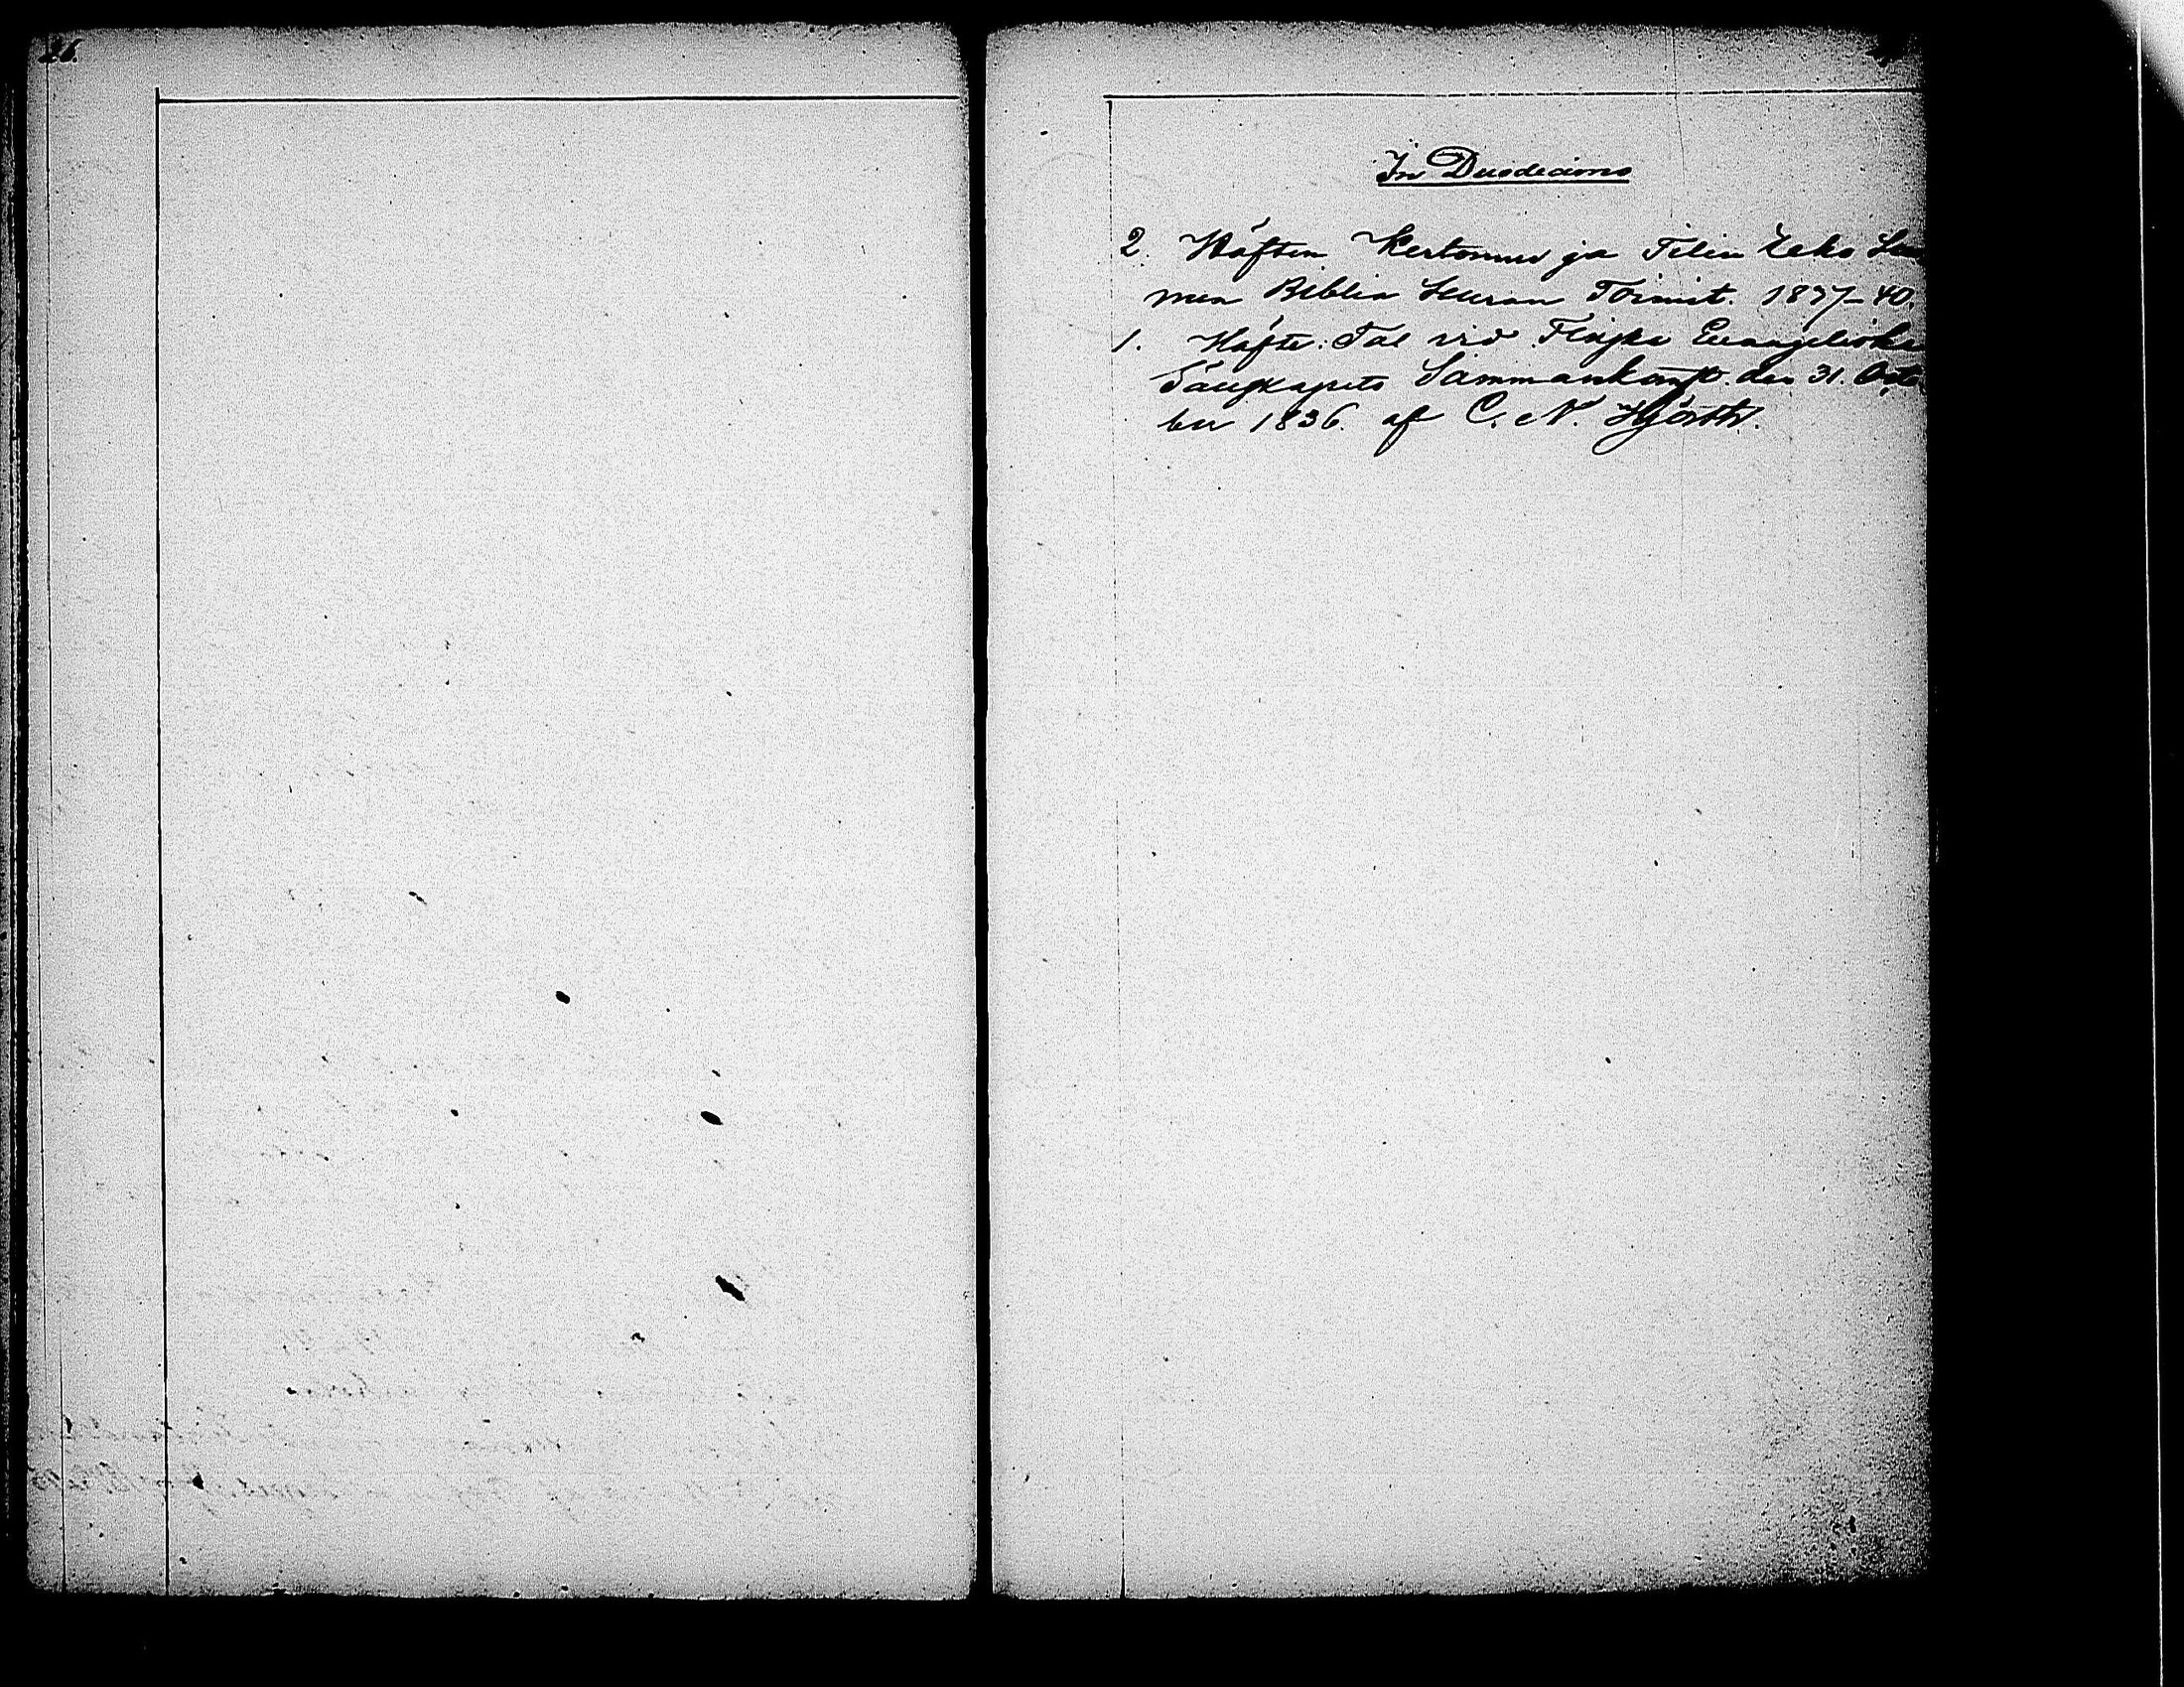 26.
In Duodecimo
2. Häften Kertomus ja Tilin teko Suo
men Biblia Seuran Toimit. 1837–40.
1. Häfte: Tal vid Finska Evangeliska
Sällskapets Sammankomst den 31. Octo
ber 1836. af C. N. Hjorth.